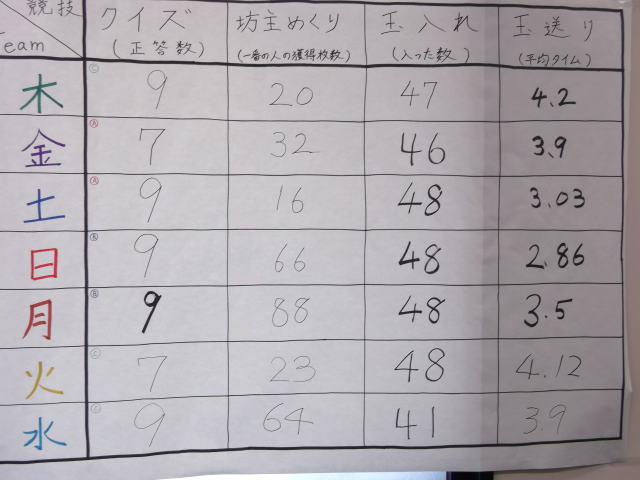 競技 クイズ 坊主めくり 玉入れ 玉送り
Team (正答数) (一番の人の獲得枚数) (入った数) (平均タイム)
木 9 20 47 4.2
金 7 32 46 3.9
土 9 16 48 3.03
日 9 66 48 2.86
月 9 88 48 3.5
火 7 23 48 4.12
水 9 64 41 3.9